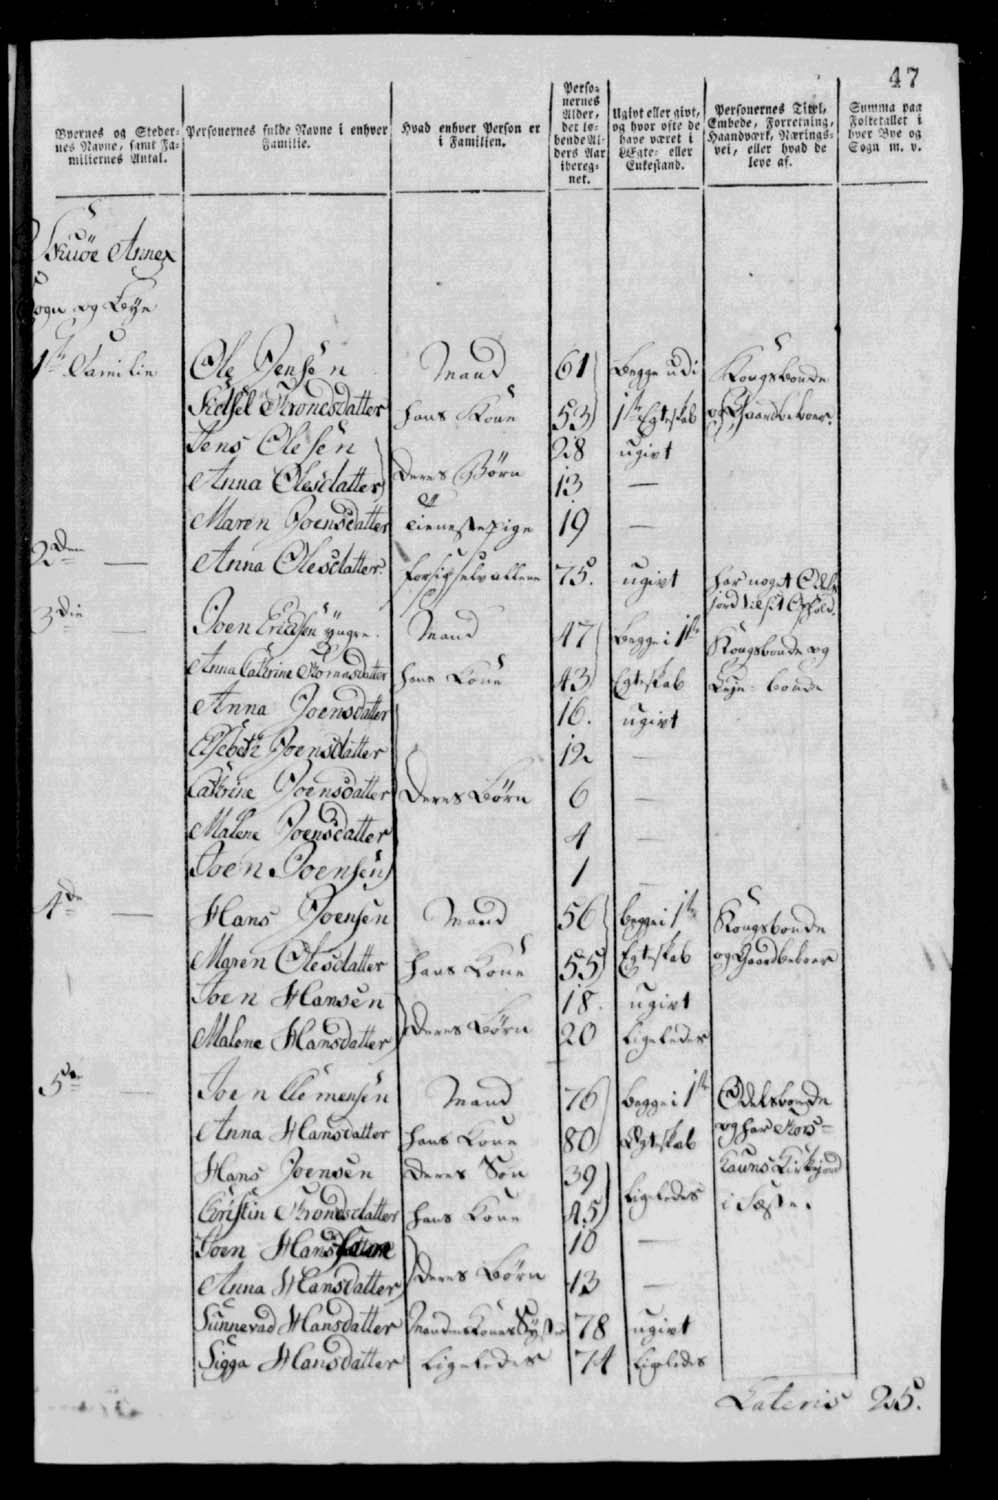 47
Byernes og Steder-
nes Navne, samt Fa-
miliernes Antal.
Personernes fulde Navne i enhver
Familie.
Hvad enhver Person er
i Familien.
Perso-
nernes
Alder,
det lø-
bende Al-
ders Aar
ibereg-
net.
Ugivt eller givt,
og hvor ofte de
have været i
Ægte- eller
Enkestand.
Personernes Titel,
Embede, Forretning,
Haandværk, Nærings-
vei, eller hvad de
leve af.
Summa paa
Folketallet i
hver Bye og
Sogn m. v.
Skuöe Annex
Sogn og Bÿe
1ste Familie Ole Jensen Mand 61 Begge udi Kongsbonde
Ketsel Tronesdatter hans Kone 53 1ste Egteskab og Gaardbeboer.
Jens Olesen 28 ugivt
Anna Olesdatter Deres Börn 13 —
Maren Joensdatter Tienestepige 19 —
2den — Anna Olesdatter forsig selv allene 75. ugivt har noget Odels
jord til sit Ophold.
3die — Joen Ericksen yngre. Mand 47 Begge i 1ste Kongsbonde og
Anna Cathrine Thomasdatter hans Kone 43 Egteskab Leje-bonde
Anna Joensdatter 16. ugivt
Elsebeth Joensdatter 12 —
Cathrine Joensdatter Deres Börn 6 —
Malene Joensdatter 4 —
Joen Joensen 1 —
4de — Hans Joensen Mand 56 begge i 1ste Kongsbonde
Maren Olesdatter hans Kone 55 Egteskab og Gaardbeboer
Joen Hansen 18. ugivt
Malene Hansdatter Deres Börn 20 ligeledes
5te — Joen Clemensen Mand 76 begge i 1ste Odelsbonde
Anna Hansdatter hans Kone 80 Egteskab og har Thors-
Hans Joensen Deres Sön 39 hauns Kirkejord
Christin Tronesdatter hans Kone 45 ligeledes i Fæste.
Joen Hansen 10 —
Anna Hansdatter Deres Börn 13 —
Sunnevad Hansdatter Mandens Kones Syster 78 ugivt
Sigga Hansdatter ligeledes 74 ligeledes
Lateris 25.